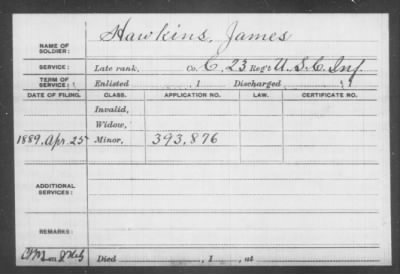 NAME OF SOLDIER: Hawkins, James
SERVICE: Late rank, Co. C, 23 Reg't U.S.C. Inf.
TERM OF SERVICE: Enlisted , 1 Discharged , 1
DATE OF FILING. CLASS. APPLICATION NO. LAW. CERTIFICATE NO.
Invalid,
Widow,
1889, Apr. 25 Minor, 393,876
ADDITIONAL SERVICES:
REMARKS:
Died , 1 , at